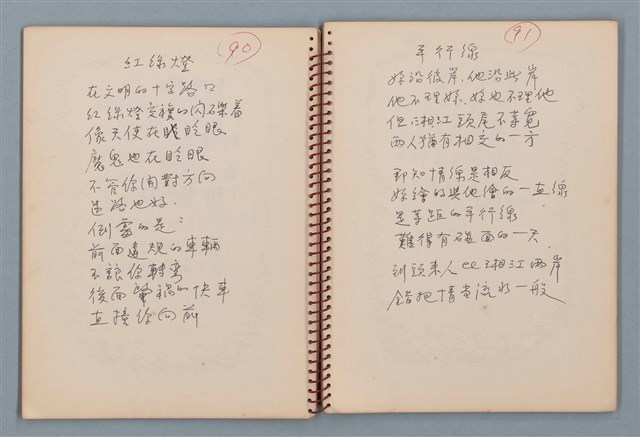 90
紅綠燈
在文明的十字路口
紅綠燈交複的閃礫着
像天使在眨眼
魔鬼也在眨眼
不管你開對方向
迷路也好
倒霉的是：
前面違規的車輛
不讓你轉彎
後面肇禍的快車
直撞你向前
91
平行線
妳沿彼岸，他沿此岸
他不理妳，妳也不理他
但湘江頭尾不等寬
兩人猶有相交的一方
那知情線是相反
妳繪的與他繪的一直線
是等距的平行線
難得有碰面的一天
到頭來人 湘江兩岸
錯把情當流水一般